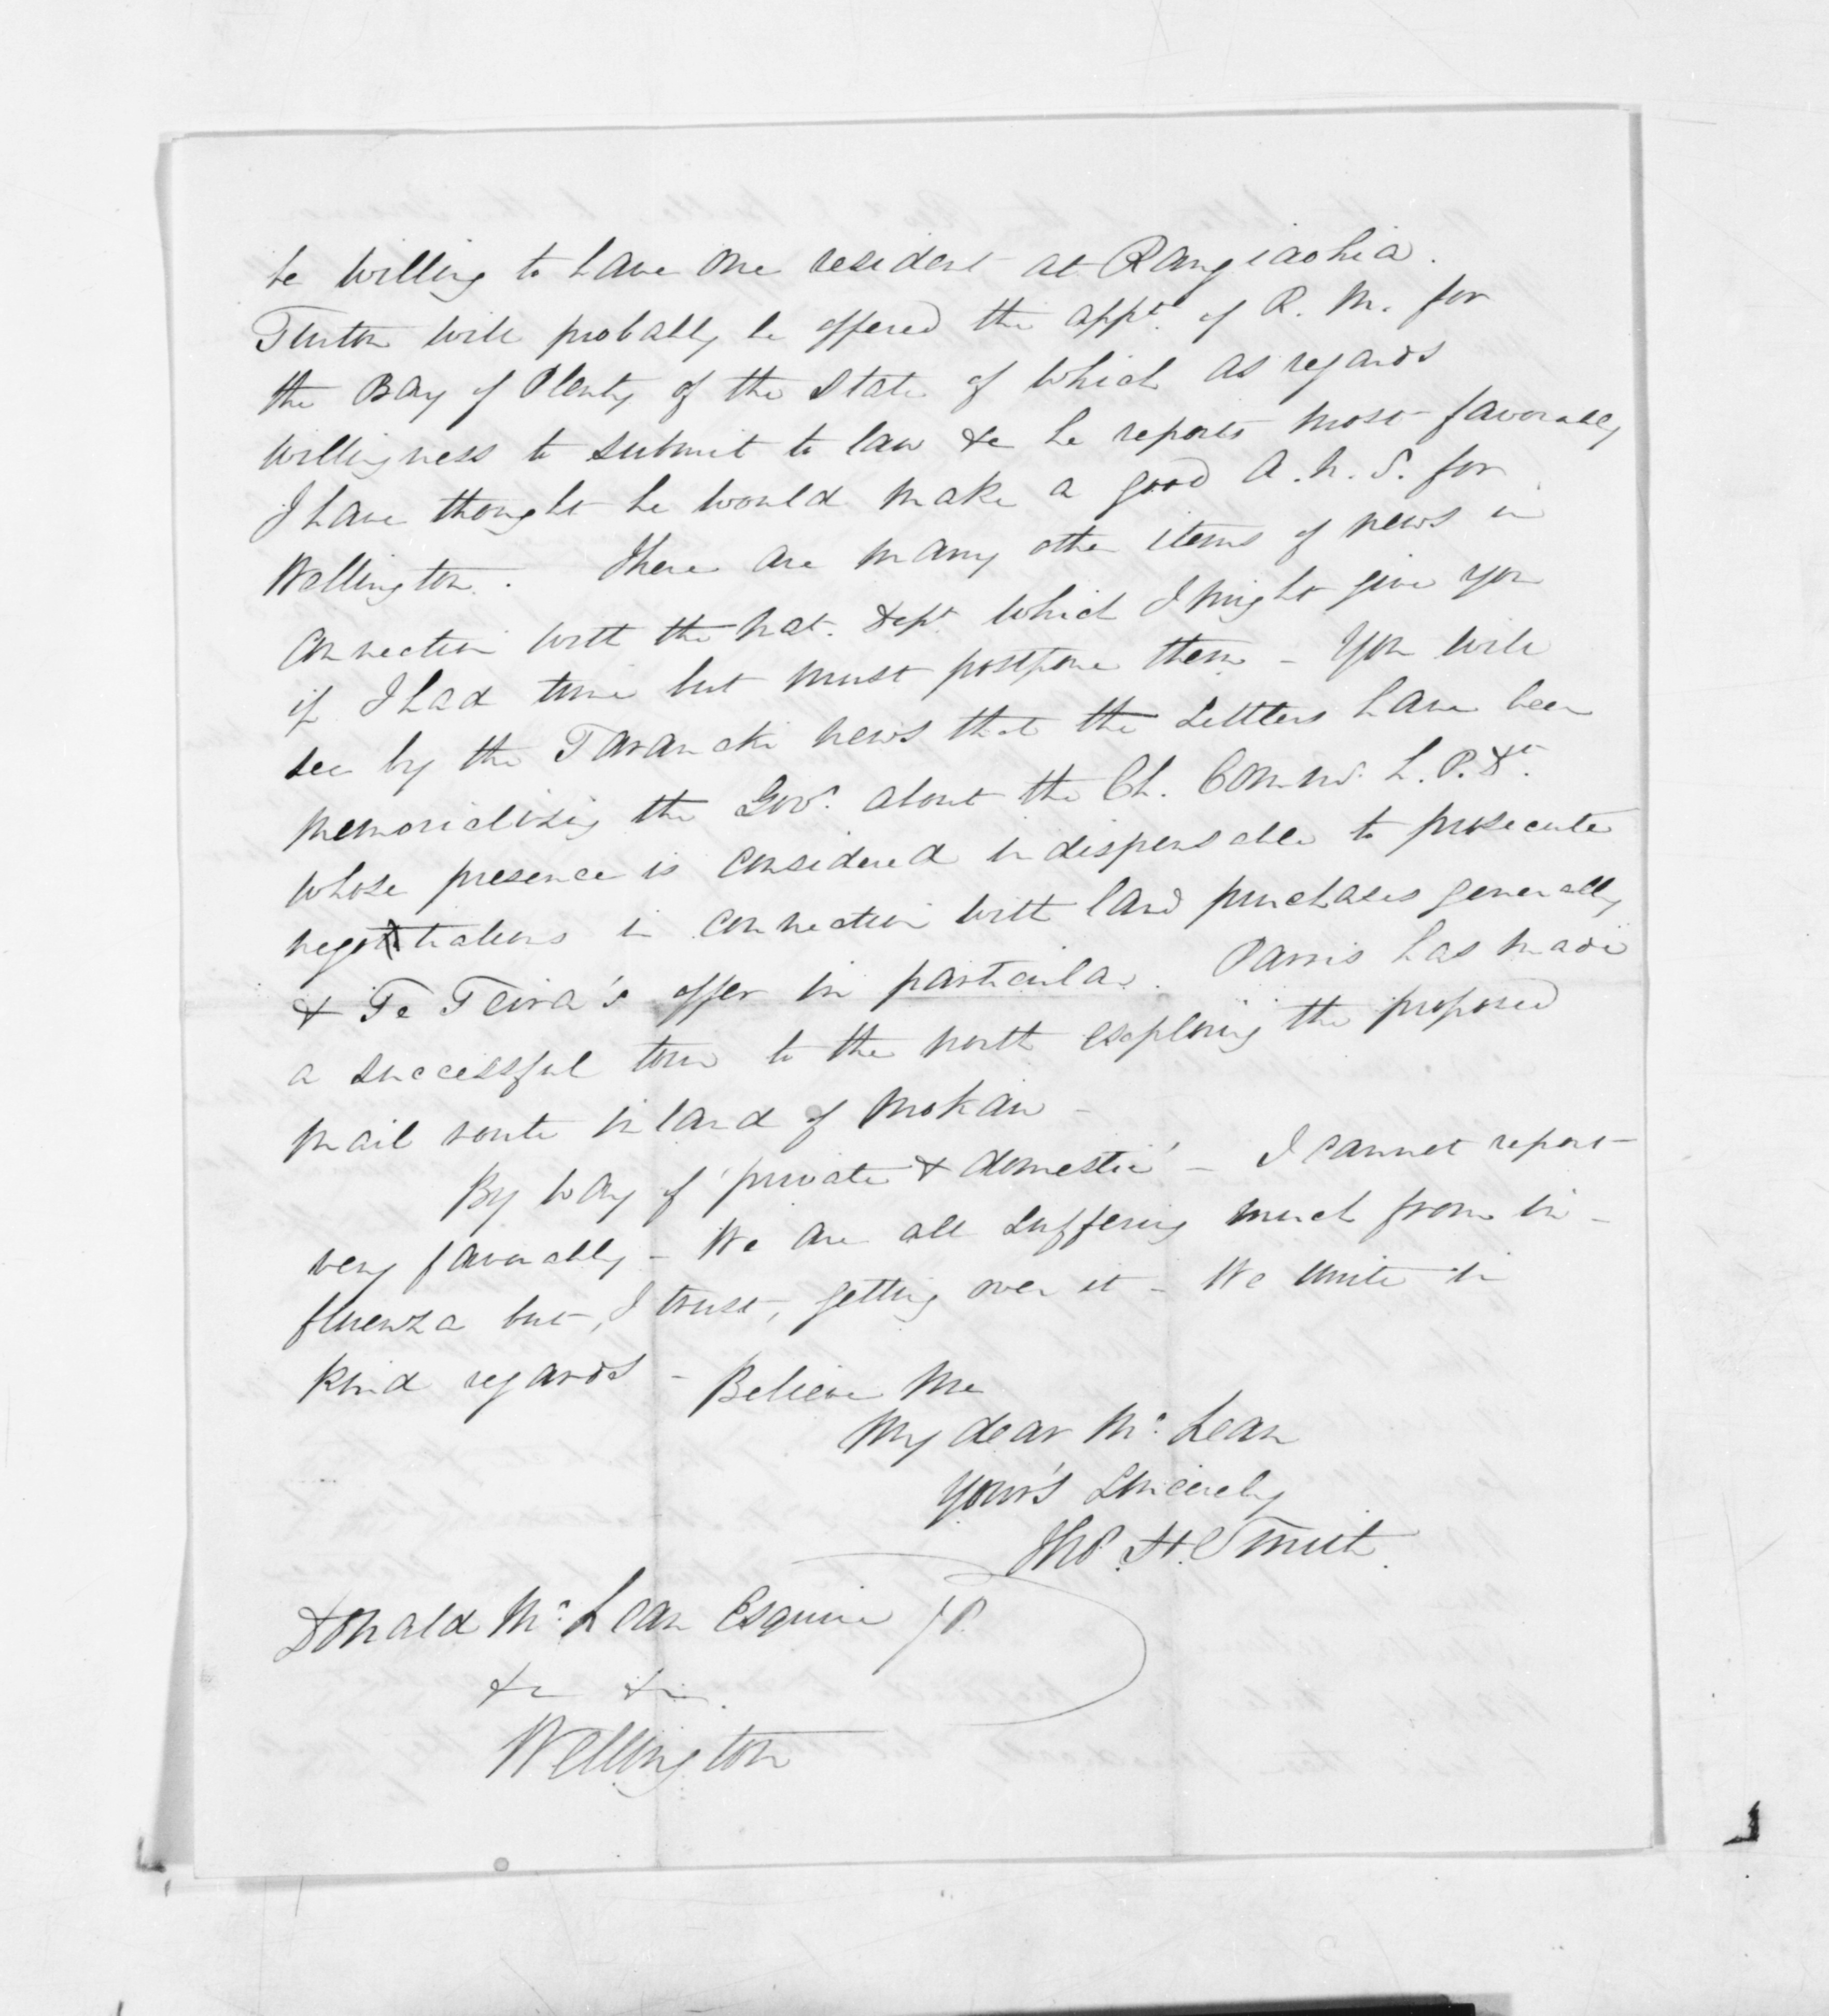 be willing to have one resident at Rangiaohia.
Turton will probably be offered the appt. of R. M. for
the Bay of Plenty of the state of which as regards
willingness to submit to law &c he reports most favorably
I have thought he would make a good A. N. S. for
Wellington. There are many other items of news in
connection with the Nat. Dept. which I might give you
if I had time but must postpone them - You will
see by the Taranaki news that the settlers have been
memorializing the Govr. about the Ch. Commr. L. P. Dt.
whose presence is considered indispensable to prosecute
negotiations in connection with land purchases generally
& Te Teira's offer in particular. Parris has made
a successful tour to the north exploring the proposed
mail route inland of Mokau -
By way of 'private & domestic' - I cannot report
very favorably - We are all suffering much from in-
fluenza but, I trust, getting over it - We unite in
kind regards - Believe me
My dear Mc. Lean
Your's sincerely
Thos. H. Smith.
Donald Mc. Lean Esquire J P.
&c &c.
Wellington